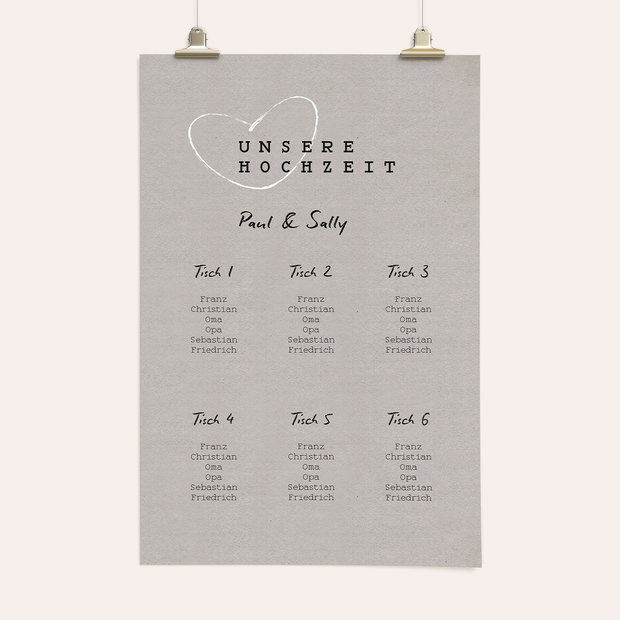 UNSERE
HOCHZEIT
Paul & Sally
Tisch 1
Franz
Christian
Oma
Opa
Sebastian
Friedrich
Tisch 2
Franz
Christian
Oma
Opa
Sebastian
Friedrich
Tisch 3
Franz
Christian
Oma
Opa
Sebastian
Friedrich
Tisch 4
Franz
Christian
Oma
Opa
Sebastian
Friedrich
Tisch 5
Franz
Christian
Oma
Opa
Sebastian
Friedrich
Tisch 6
Franz
Christian
Oma
Opa
Sebastian
Friedrich